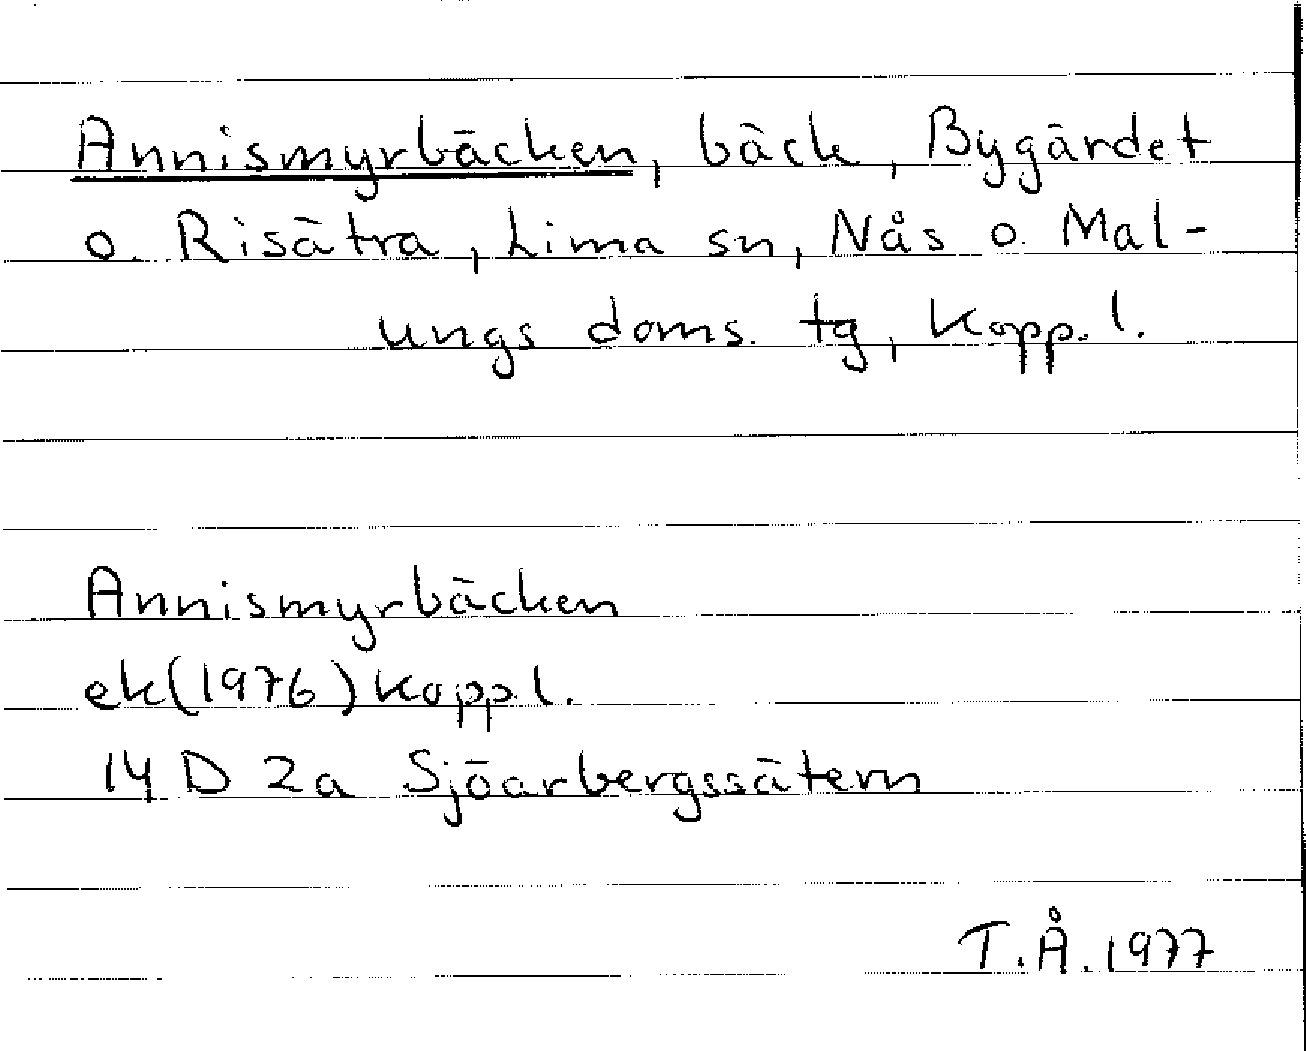 Annismyrbäcken, bäck, Bygärdet
o. Risätra, Lima sn, Nås o. Mal-
ungs doms. tg, Kopp. l.
Annismyrbäcken
ek(1976) Kopp l.
14 D 2a Sjöarbergssätern
T.Å. 1977